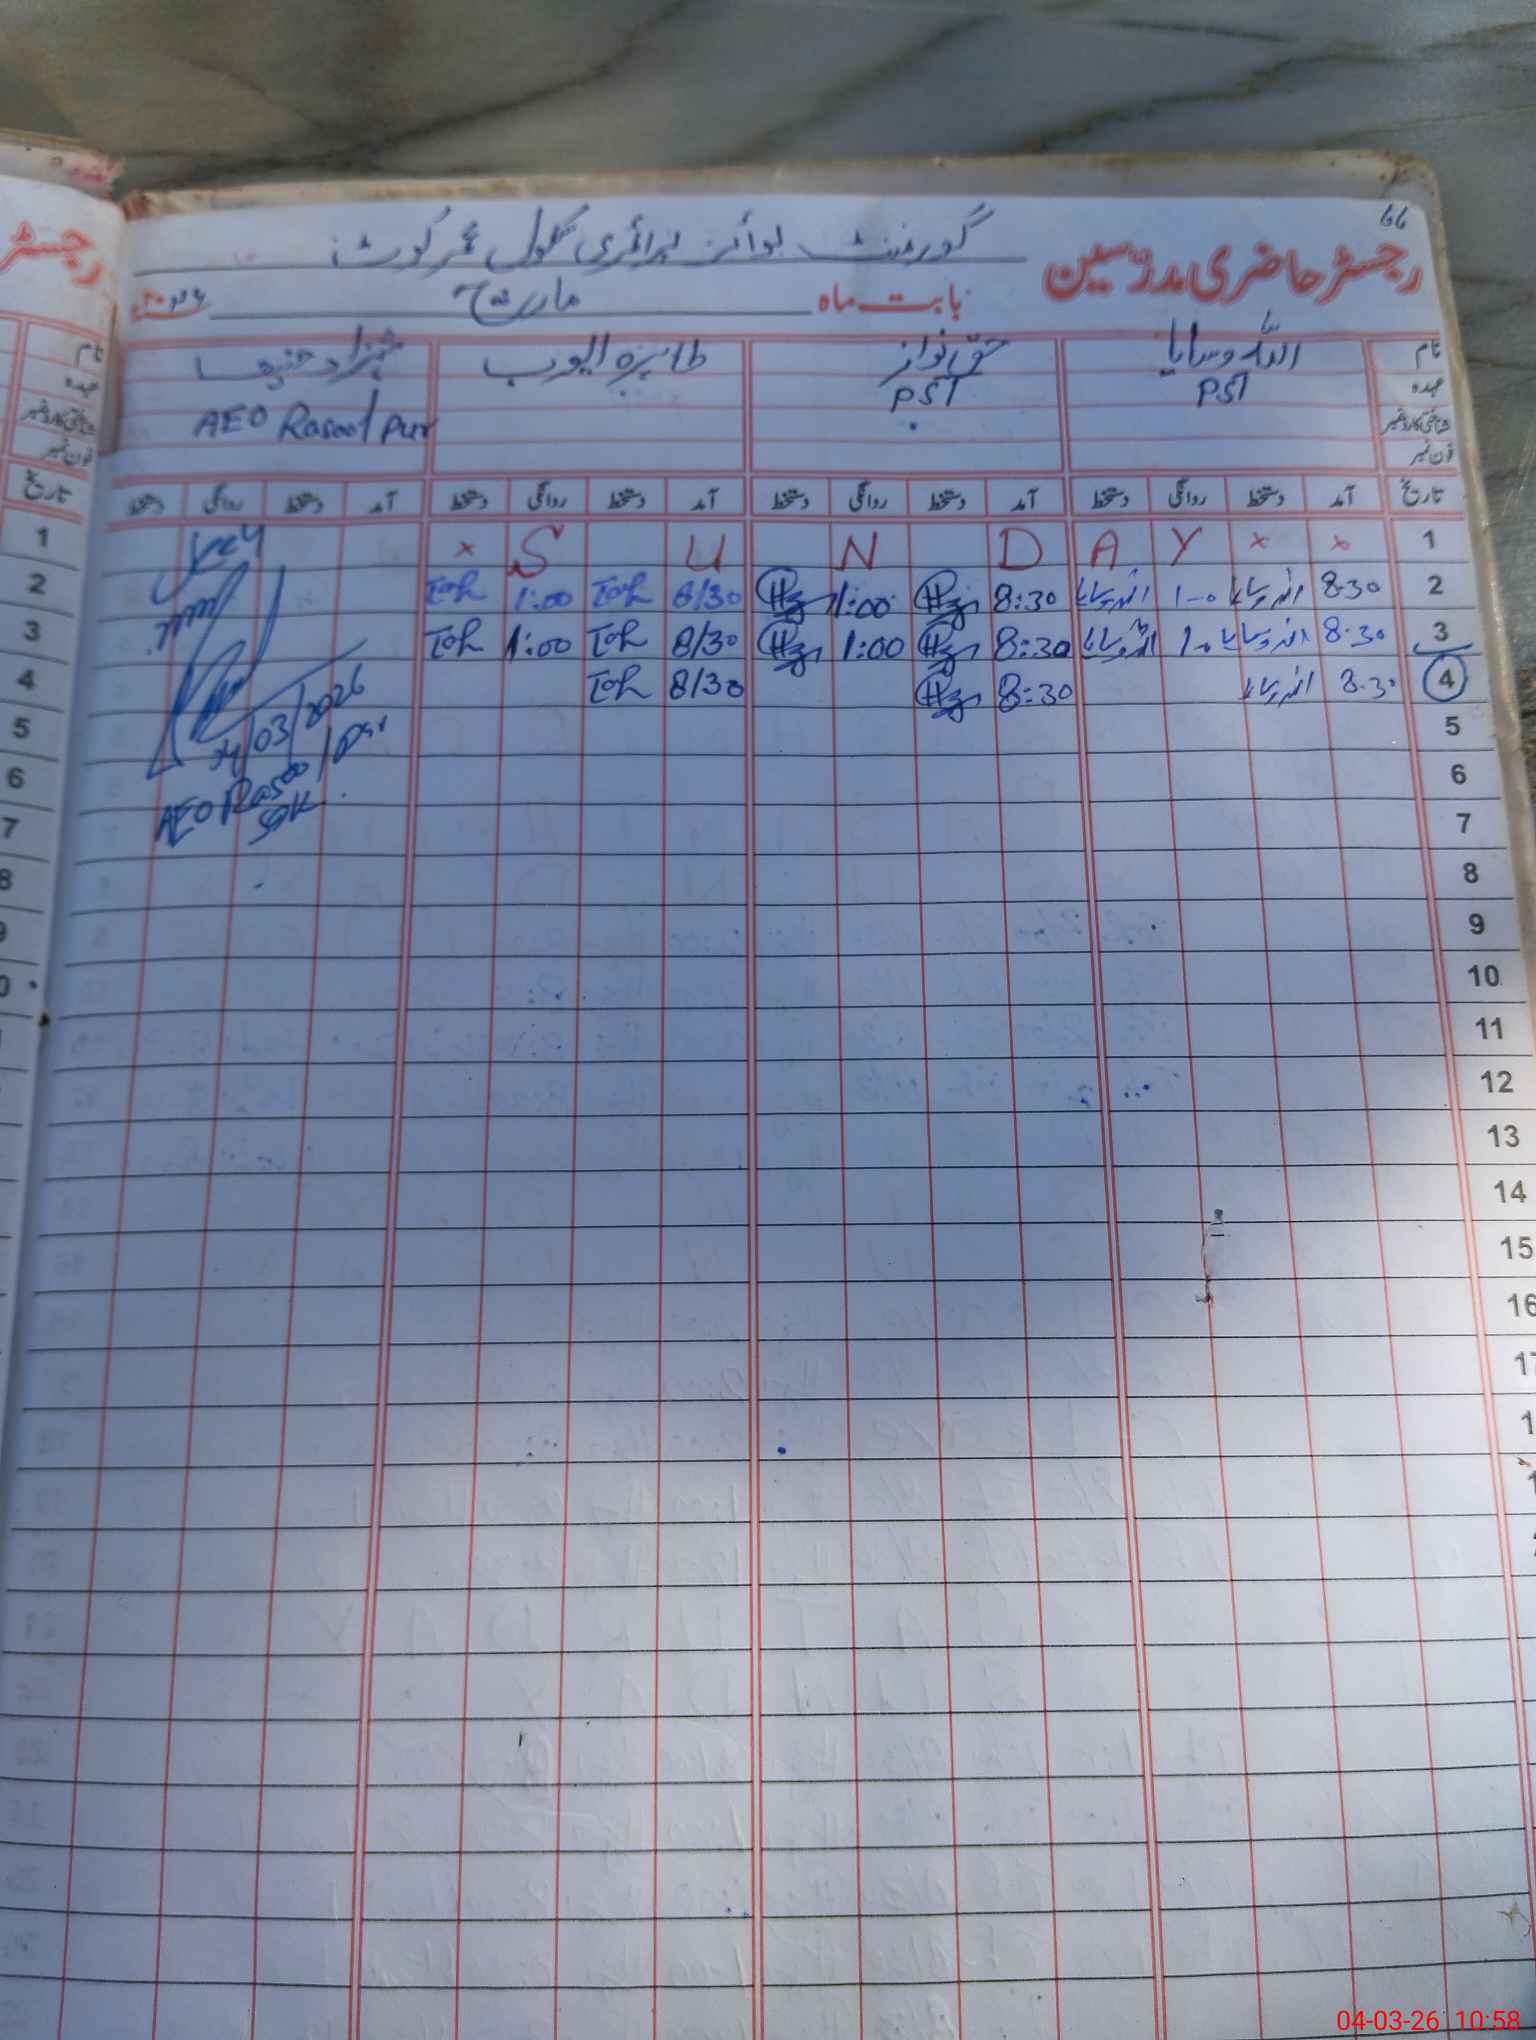 66
رجسٹر حاضری مدرّسین گورنمنٹ بوائز پرائمری سکول عمرکوٹ
بابت ماہ مارچ
نام اللہ وسایا حق نواز طاہرہ ایوب
عہدہ PST PST
شناختی کارڈ نمبر AEO Rasool Pur
فون نمبر
تاریخ آمد دستخط روانگی دستخط آمد دستخط روانگی دستخط آمد دستخط روانگی دستخط آمد دستخط روانگی دستخط
× S U N D A Y × × 1
2 8-30 اللہ وسایا 1-0 اللہ وسایا 8:30 1:00 8/30 1:00
3 8-30 اللہ وسایا 1-0 اللہ وسایا 8:30 1:00 8/30 1:00
4 8-30 اللہ وسایا 8:30 8/30
5
6
7
8
9
10
11
12
13
14
15
16
04/03/2026
AEO Rasool pur
رجسٹر
نام
عہدہ
شناختی کارڈ نمبر
فون نمبر
تاریخ
1
2
3
4
5
6
7
8
9
04-03-26 10:58